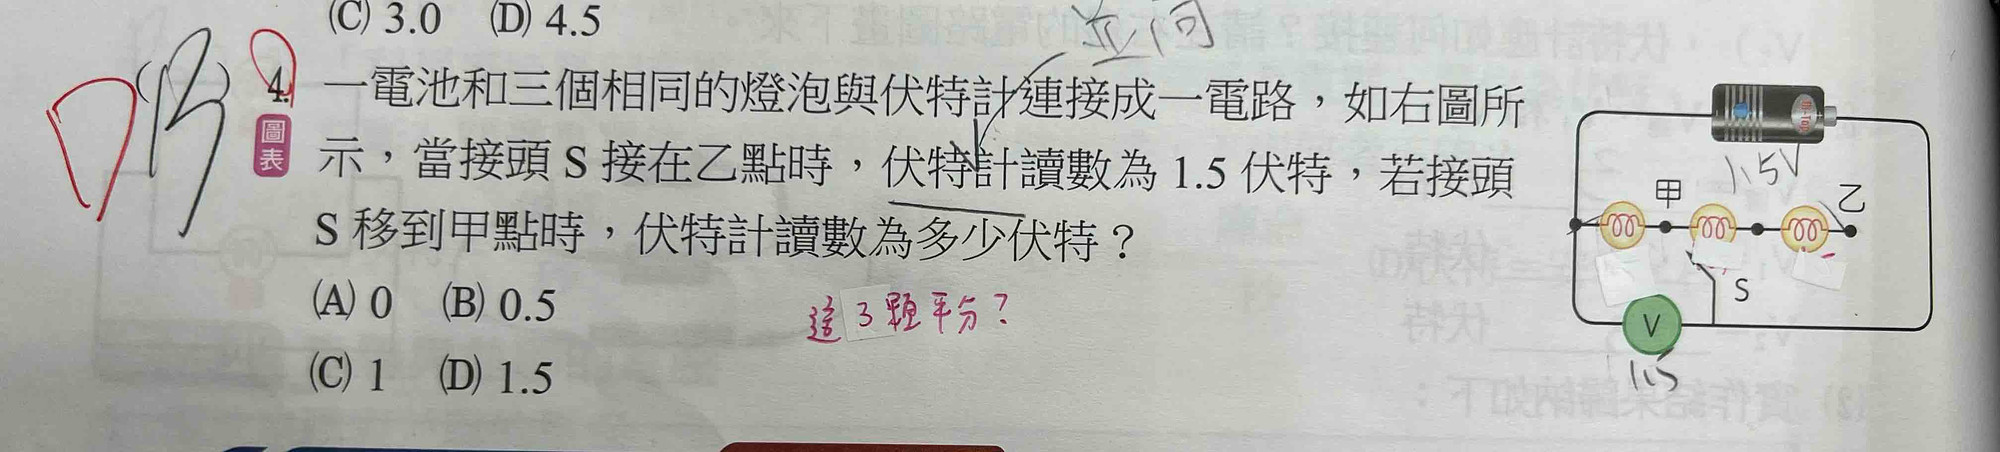 (C) 3.0 (D) 4.5
並 同
D
(B) 4. 一電池和三個相同的燈泡與伏特計連接成一電路，如右圖所
圖表 示，當接頭 S 接在乙點時，伏特計讀數為 1.5 伏特，若接頭
S 移到甲點時，伏特計讀數為多少伏特？
(A) 0 (B) 0.5
這 3 顆平分？
(C) 1 (D) 1.5
1.5V
甲
乙
S
V
1.5